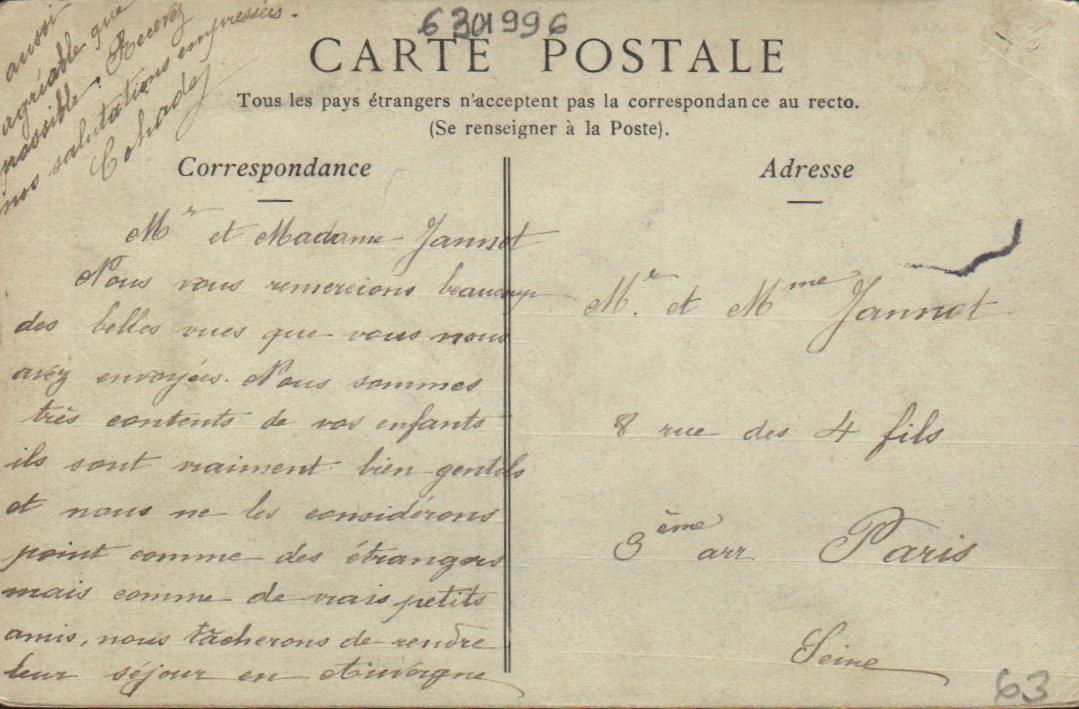 6301996
CARTE POSTALE
Tous les pays étrangers n'acceptent pas la correspondance au recto.
(Se renseigner à la Poste).
Correspondance
Adresse
Mr et Madame Jannot
Nous vous remercions beaucoup
des belles vues que vous nous
avez envoyées. Nous sommes
très contents de vos enfants
ils sont vraiment bien gentils
et nous ne les considérons
point comme des étrangers
mais comme de vrais petits
amis, nous tâcherons de rendre
leur séjour en Auvergne
aussi
agréable que
possible. Recevez
nos salutations empressées.
Mr. et Mme Jannot
8 rue des 4 fils
3ème arr Paris
Seine
63